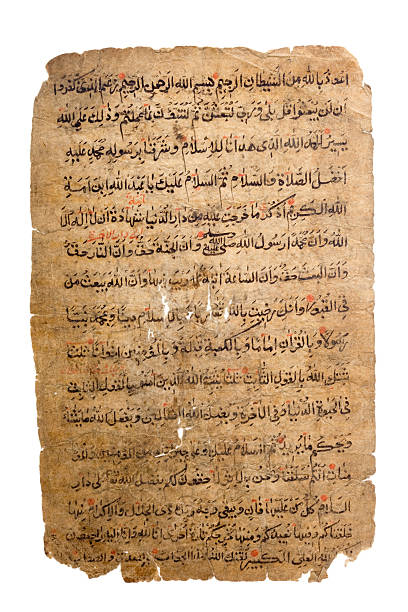 اعوذ بالله من الشيطان الرجيم بسم الله الرحمن الرحيم زعم الذين كفروا
ان لن يبعثوا قل بلى وربي لتبعثن ثم لتنبؤن بما عملتم وذلك على الله
يسير الحمد الله الذي هدانا للاسلام وشرفنا برسوله محمد عليه
افضل الصلاة والسلام ثم السلام عليك يا عبد الله ابن امة
الله الكريم اذكر ما خرجت عليه من دار الدنيا شهادة ان لا اله الا
الله وان محمد ارسول الله صلى الله عليه وسلم وان الجنة حق وان النار حق
وان البعث حق وان الساعة اتية لا ريب فيها وان الله يبعث من
في القبور وانك رضيت بالله ربا وبالاسلام دينا وبمحمد نبيا
رسولا وبالقران اماما وبالكعبة قبلة وبالمومنين اخوانا
ثبتك الله بالقول الثابت يثبت الله الذين امنوا بالقول الثابت
في الحيوة الدنيا وفي الآخرة ويضل الله الظالمين ويفعل الله ما يشاء
ويحكم ما يريد ثم السلام عليك
انتم سلفنا ونحن دار
السلام كل من عليها فان ويبقى وجه ربك ذي الجلال والاكرام منها
خلقناكم وفيها نعيدكم ومنها نخرجكم تارة اخرى
الله العلي الكبير ثبتك الله